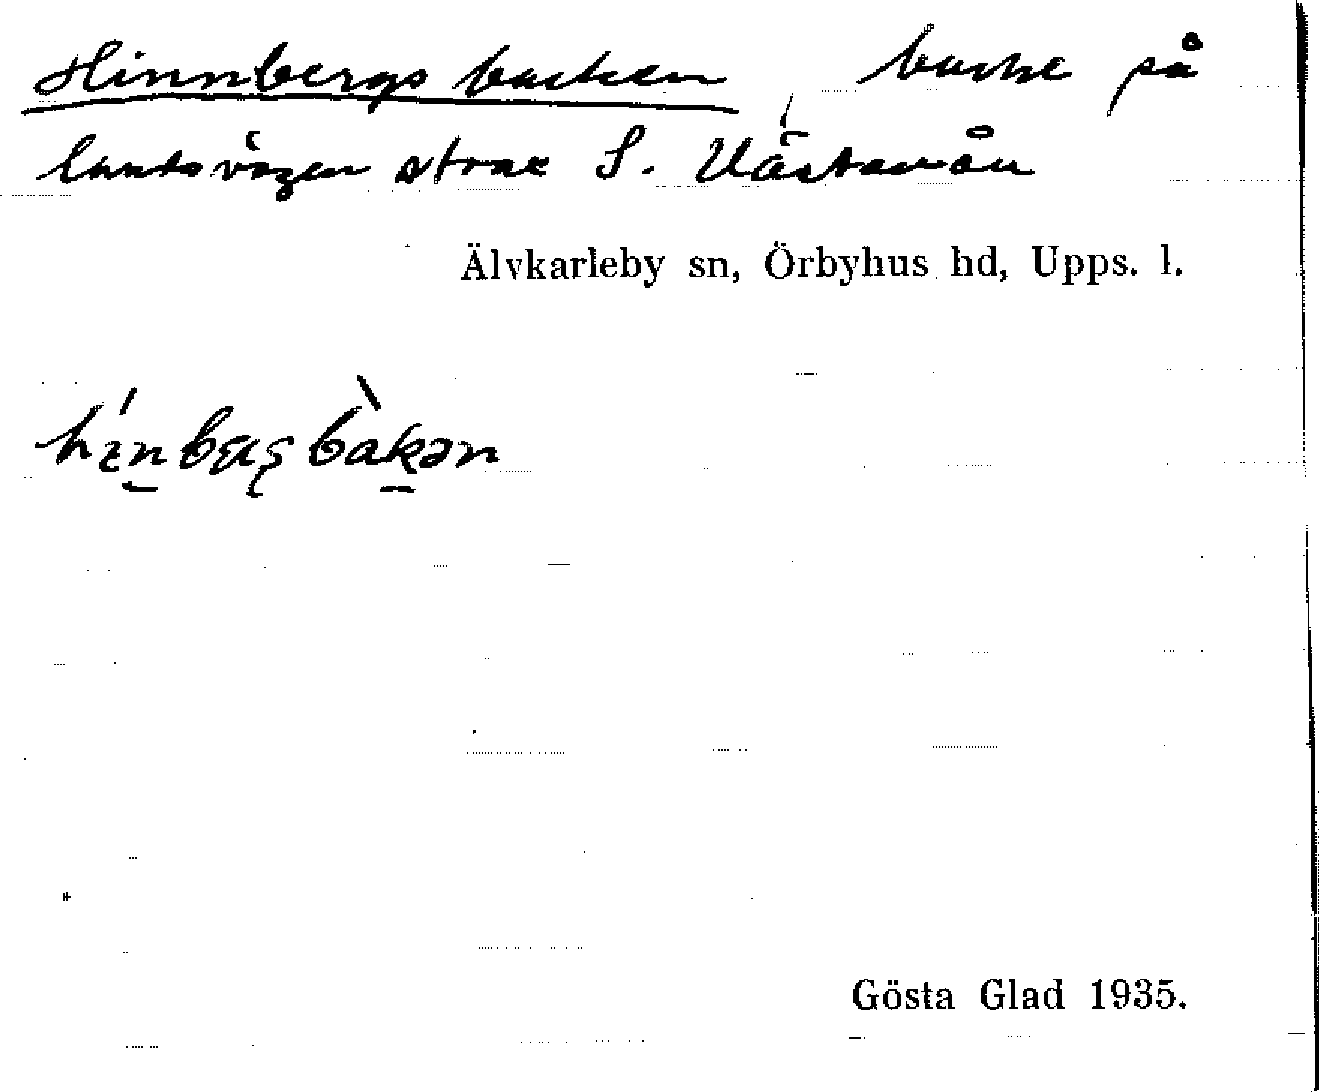 Hinnbergsbacken, backe på
landsvägen strax S. Västanån
Älvkarleby sn, Örbyhus hd, Upps. l.
Gösta Glad 1935.